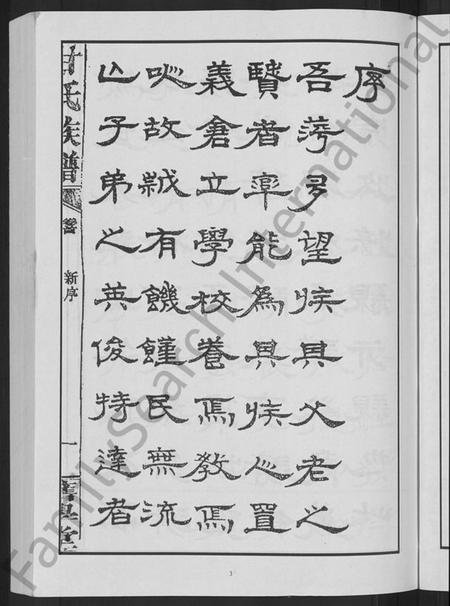 序
吾萍多望族其父老之
賢者率能為其族心置
義倉立學校養焉教焉
故有饑饉民無流
亾子弟之英俊特達者
氏族譜
新序
一
堂
1
FamilySearch International